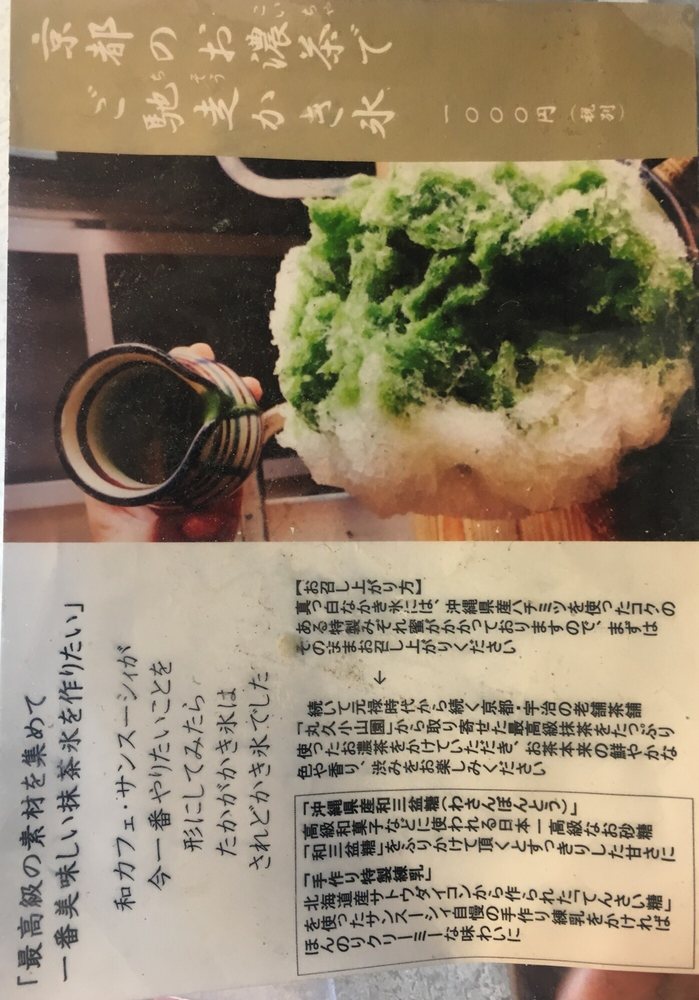 京都のお濃茶で
こいちゃ
ご馳走かき氷
ちそう
一〇〇〇円（税別）
「最高級の素材を集めて
一番美味しい抹茶氷を作りたい」
和カフェ・サンスーシィが
今一番やりたいことを
形にしてみたら
たかがかき氷は
されどかき氷でした
【お召し上がり方】
真っ白なかき氷には、沖縄県産ハチミツを使ったコクの
ある特製みぞれ蜜がかかっておりますので、まずは
そのままお召し上がりください
↓
続いて元禄時代から続く京都・宇治の老舗茶舗
「丸久小山園」から取り寄せた最高級抹茶をたっぷり
使ったお濃茶をかけていただき、お茶本来の鮮やかな
色や香り、渋みをお楽しみください
「沖縄県産和三盆糖（わさんぼんとう）」
高級和菓子などに使われる日本一高級なお砂糖
「和三盆糖」をふりかけて頂くとすっきりした甘さに
「手作り特製練乳」
北海道産サトウダイコンから作られた「てんさい糖」
を使ったサンスーシィ自慢の手作り練乳をかければ
ほんのりクリーミーな味わいに